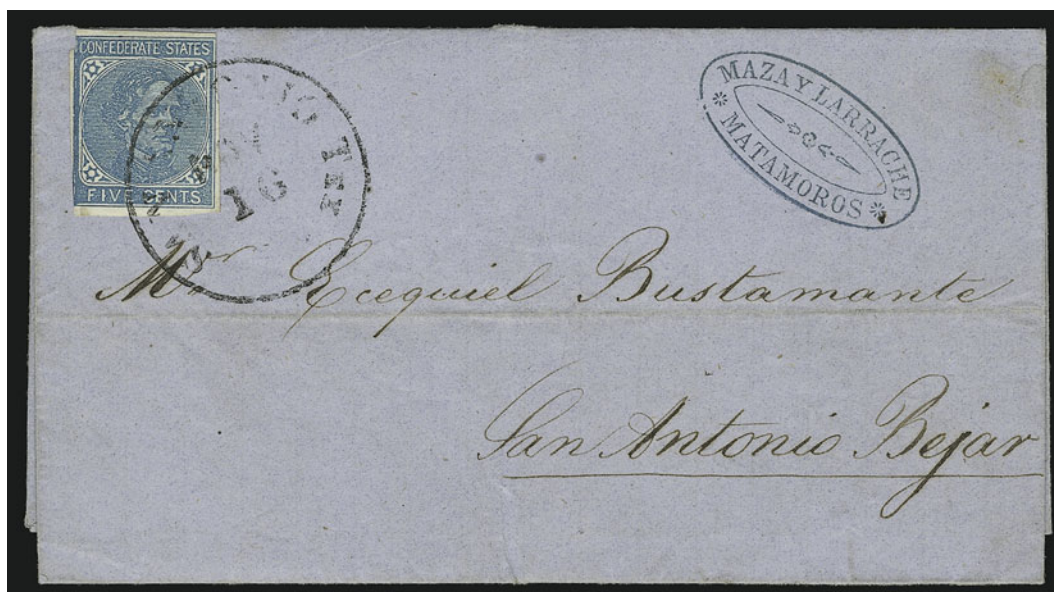 CONFEDERATE STATES
FIVE CENTS
SAN ANTONIO TEX
NOV
16
MAZA Y LARRACHE
MATAMOROS
Mr Ecequiel Bustamante
San Antonio Bejar